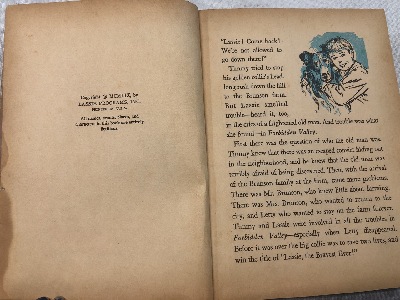 Copyright by
LASSIE PROGRAMS, INC.
"Lassie! Come back!
We're not allowed to
go down there!"
Timmy tried to stop
his golden collie's head-
long rush down the hill
to the Brunson farm.
But Lassie smelled
trouble—heard it, too,
in the cries of a frightened old man. And trouble was what
she found—in Forbidden Valley.
First there was the question of who the old man was.
Timmy knew that there was an escaped convict hiding out
in the neighborhood, and he knew that the old man was
terribly afraid of being discovered. Then, with the arrival
of the Brunson family at the farm, came more problems.
There was Mr. Brunson, who knew little about farming.
There was Mrs. Brunson, who wanted to return to the
city, and Leny who wanted to stay on the farm forever.
Timmy and Lassie were involved in all the troubles in
Forbidden Valley—especially when Leny disappeared.
Before it was over the big collie was to save two lives, and
win the title of "Lassie, the Bravest Ever!"